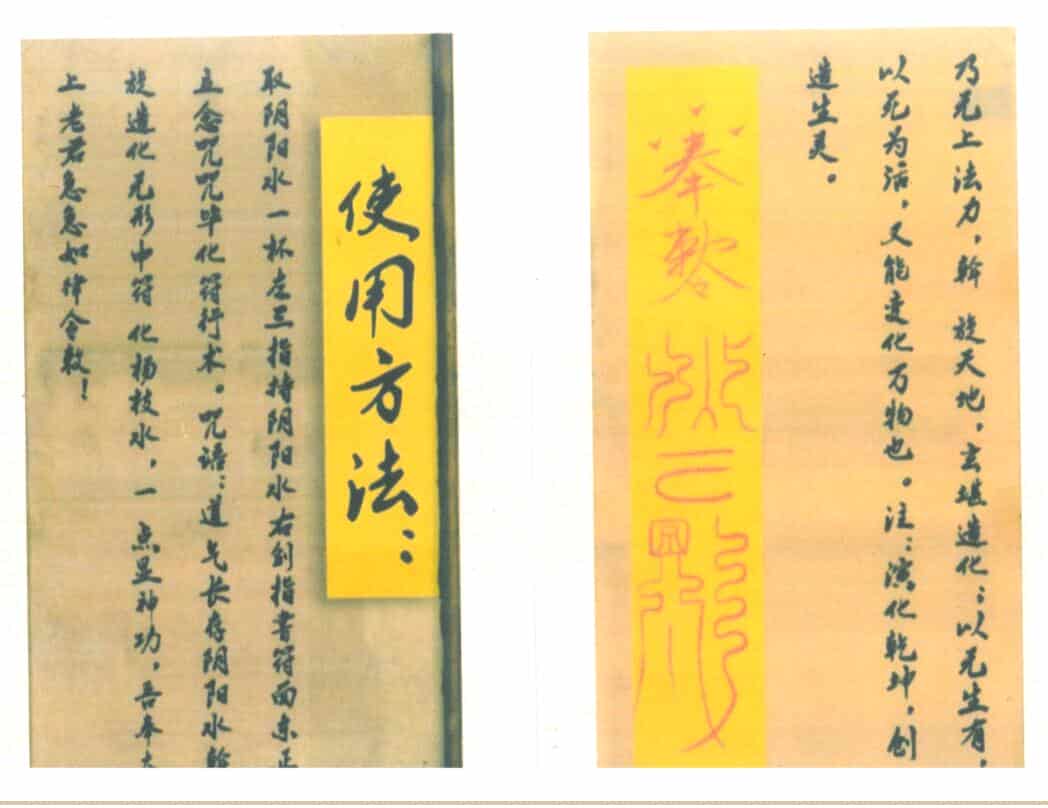 乃无上法力，斡旋天地，玄堪造化；以无生有，
以死为活，又能变化万物也。注：演化乾坤，创
造生灵。
奉敕
使用方法：
取阴阳水一杯左三指持阴阳水右剑指书符面东正
立念咒咒毕化符行术。咒语：道气长存阴阳水斡
旋造化无形中符化杨枝水，一点显神功，吾奉太
上老君急急如律令敕！